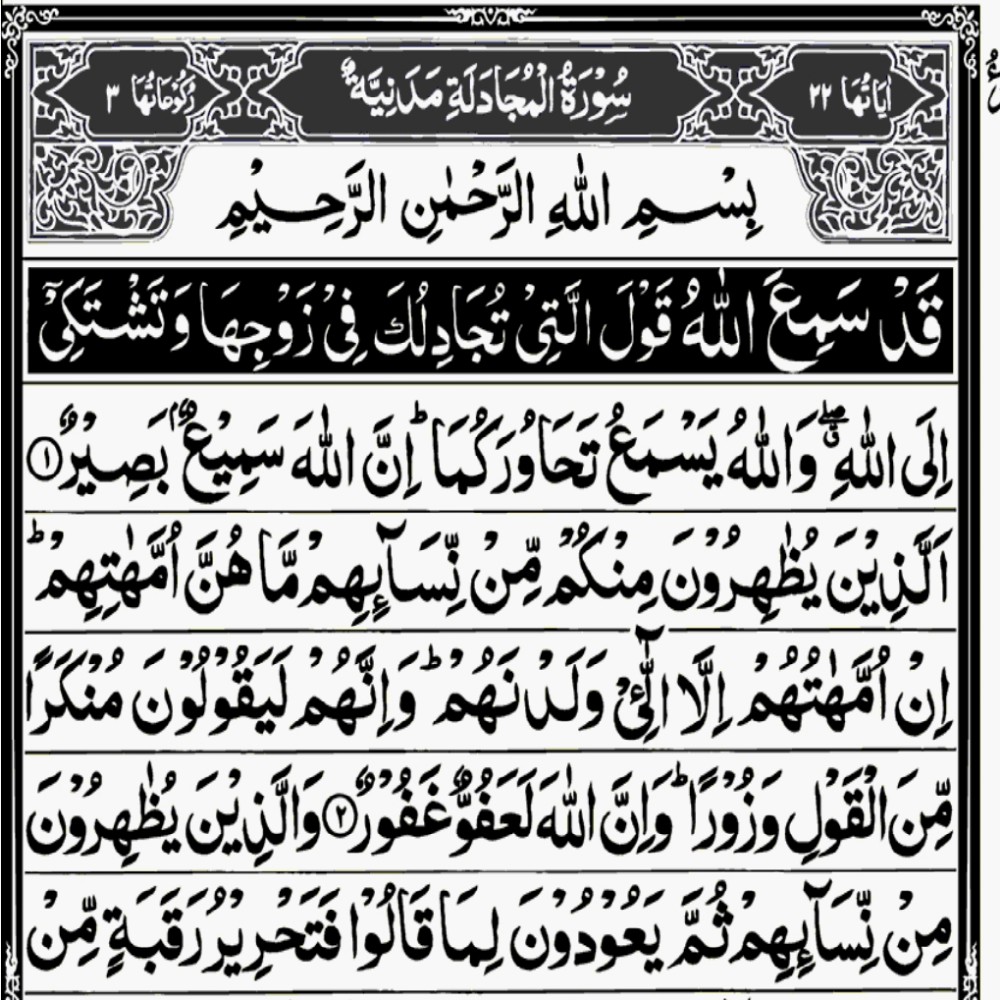 اٰيَاتُهَا ٢٢ سُوْرَةُ الْمُجَادَلَةِ مَدَنِيَّةٌ رُكُوْعَاتُهَا ٣
بِسْمِ اللّٰهِ الرَّحْمٰنِ الرَّحِيْمِ
قَدْ سَمِعَ اللّٰهُ قَوْلَ الَّتِيْ تُجَادِلُكَ فِيْ زَوْجِهَا وَ تَشْتَكِيْۤ
اِلَى اللّٰهِ ۖۗ وَاللّٰهُ يَسْمَعُ تَحَاوُرَكُمَا ؕ اِنَّ اللّٰهَ سَمِيْعٌۢ بَصِيْرٌ ①
اَلَّذِيْنَ يُظٰهِرُوْنَ مِنْكُمْ مِّنْ نِّسَآىِٕهِمْ مَّا هُنَّ اُمَّهٰتِهِمْ ؕ
اِنْ اُمَّهٰتُهُمْ اِلَّا الّٰٓـِٔيْ وَلَدْنَهُمْ ؕ وَاِنَّهُمْ لَيَقُوْلُوْنَ مُنْكَرًا
مِّنَ الْقَوْلِ وَزُوْرًا ؕ وَاِنَّ اللّٰهَ لَعَفُوٌّ غَفُوْرٌ ② وَالَّذِيْنَ يُظٰهِرُوْنَ
مِنْ نِّسَآىِٕهِمْ ثُمَّ يَعُوْدُوْنَ لِمَا قَالُوْا فَتَحْرِيْرُ رَقَبَةٍ مِّنْ